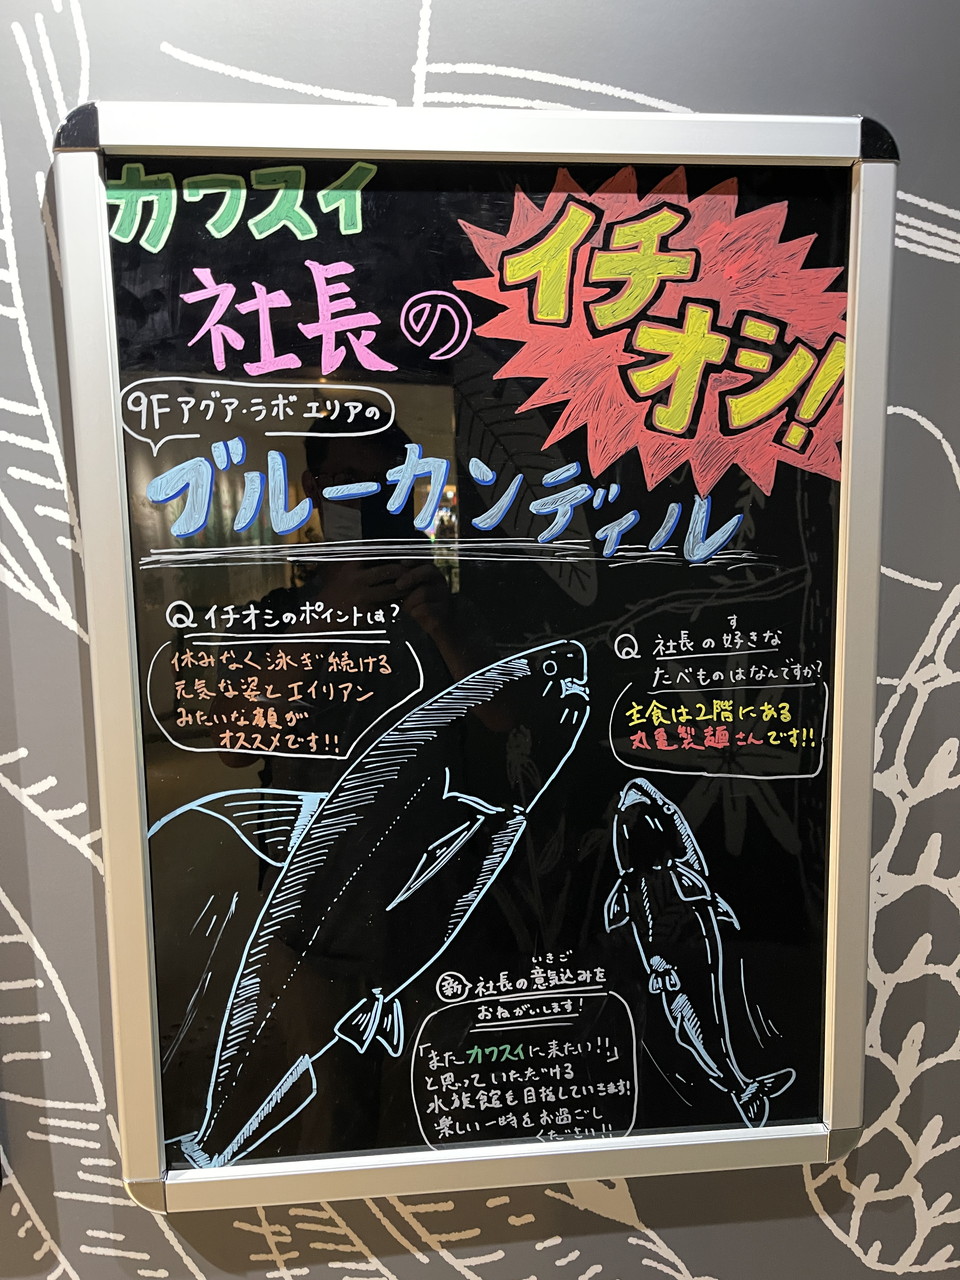 カワスイ
社長の
イチ
オシ!
9Fアクア・ラボエリアの
ブルーカンディル
Q イチオシのポイントは?
休みなく泳ぎ続ける
元気な姿とエイリアン
みたいな顔が
オススメです!!
す
Q 社長の好きな
たべものはなんですか?
主食は2階にある
丸亀製麺さんです!!
いきご
新 社長の意気込みを
おねがいします!
「またカワスイに来たい!!」
と思っていただける
水族館を目指していきます!
楽しい一時をお過ごし
ください!!